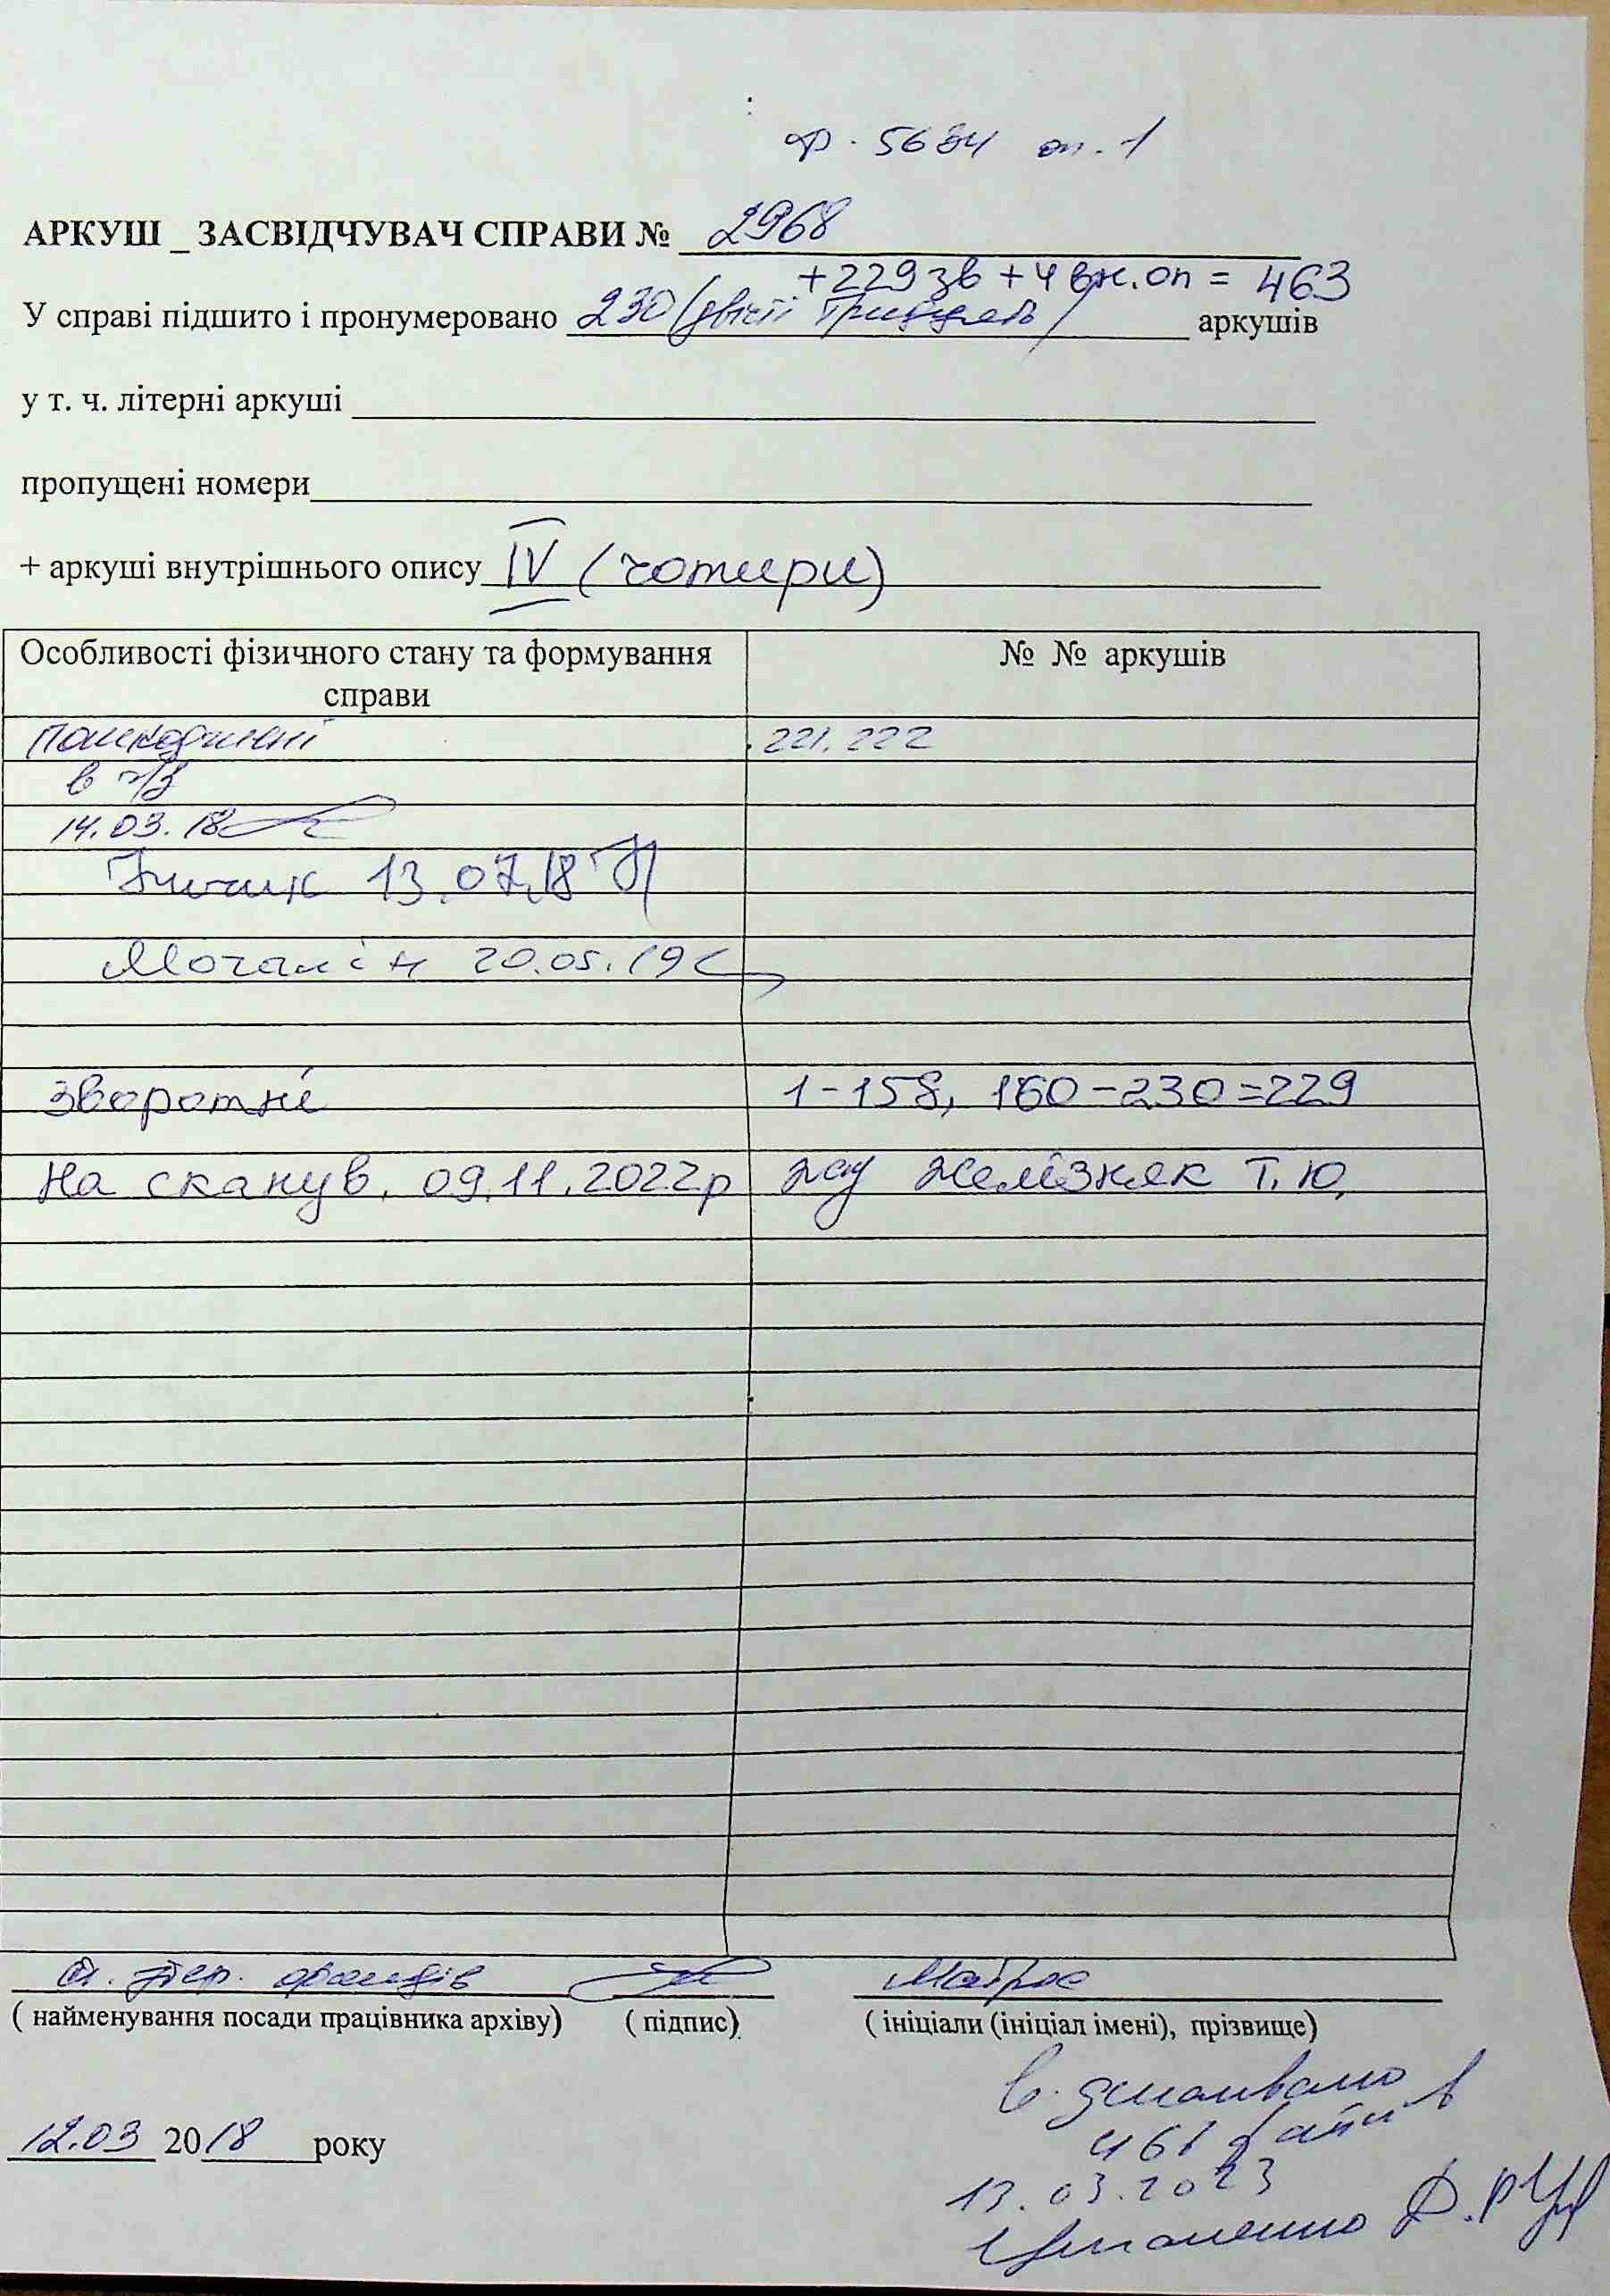 ф. 5684 оп. 1
АРКУШ _ ЗАСВІДЧУВАЧ СПРАВИ № 2968
+229 зв + 4 вн. оп = 463
У справі підшито і пронумеровано 230 (двісті тридцять) аркушів
у т. ч. літерні аркуші
пропущені номери
+ аркуші внутрішнього опису IV (чотири)
Особливості фізичного стану та формування справи
№ № аркушів
Пошкоджені 221, 222
в ч/з
14.03.18
13.07.18
Мочалін 20.05.19
Зворотні 1-158, 160-230=229
На сканув. 09.11.2022р Желізняк Т. Ю.
фондів
( найменування посади працівника архіву) ( підпис) ( ініціали (ініціал імені), прізвище)
12.03 2018 року
461 файлів
13.03.2023